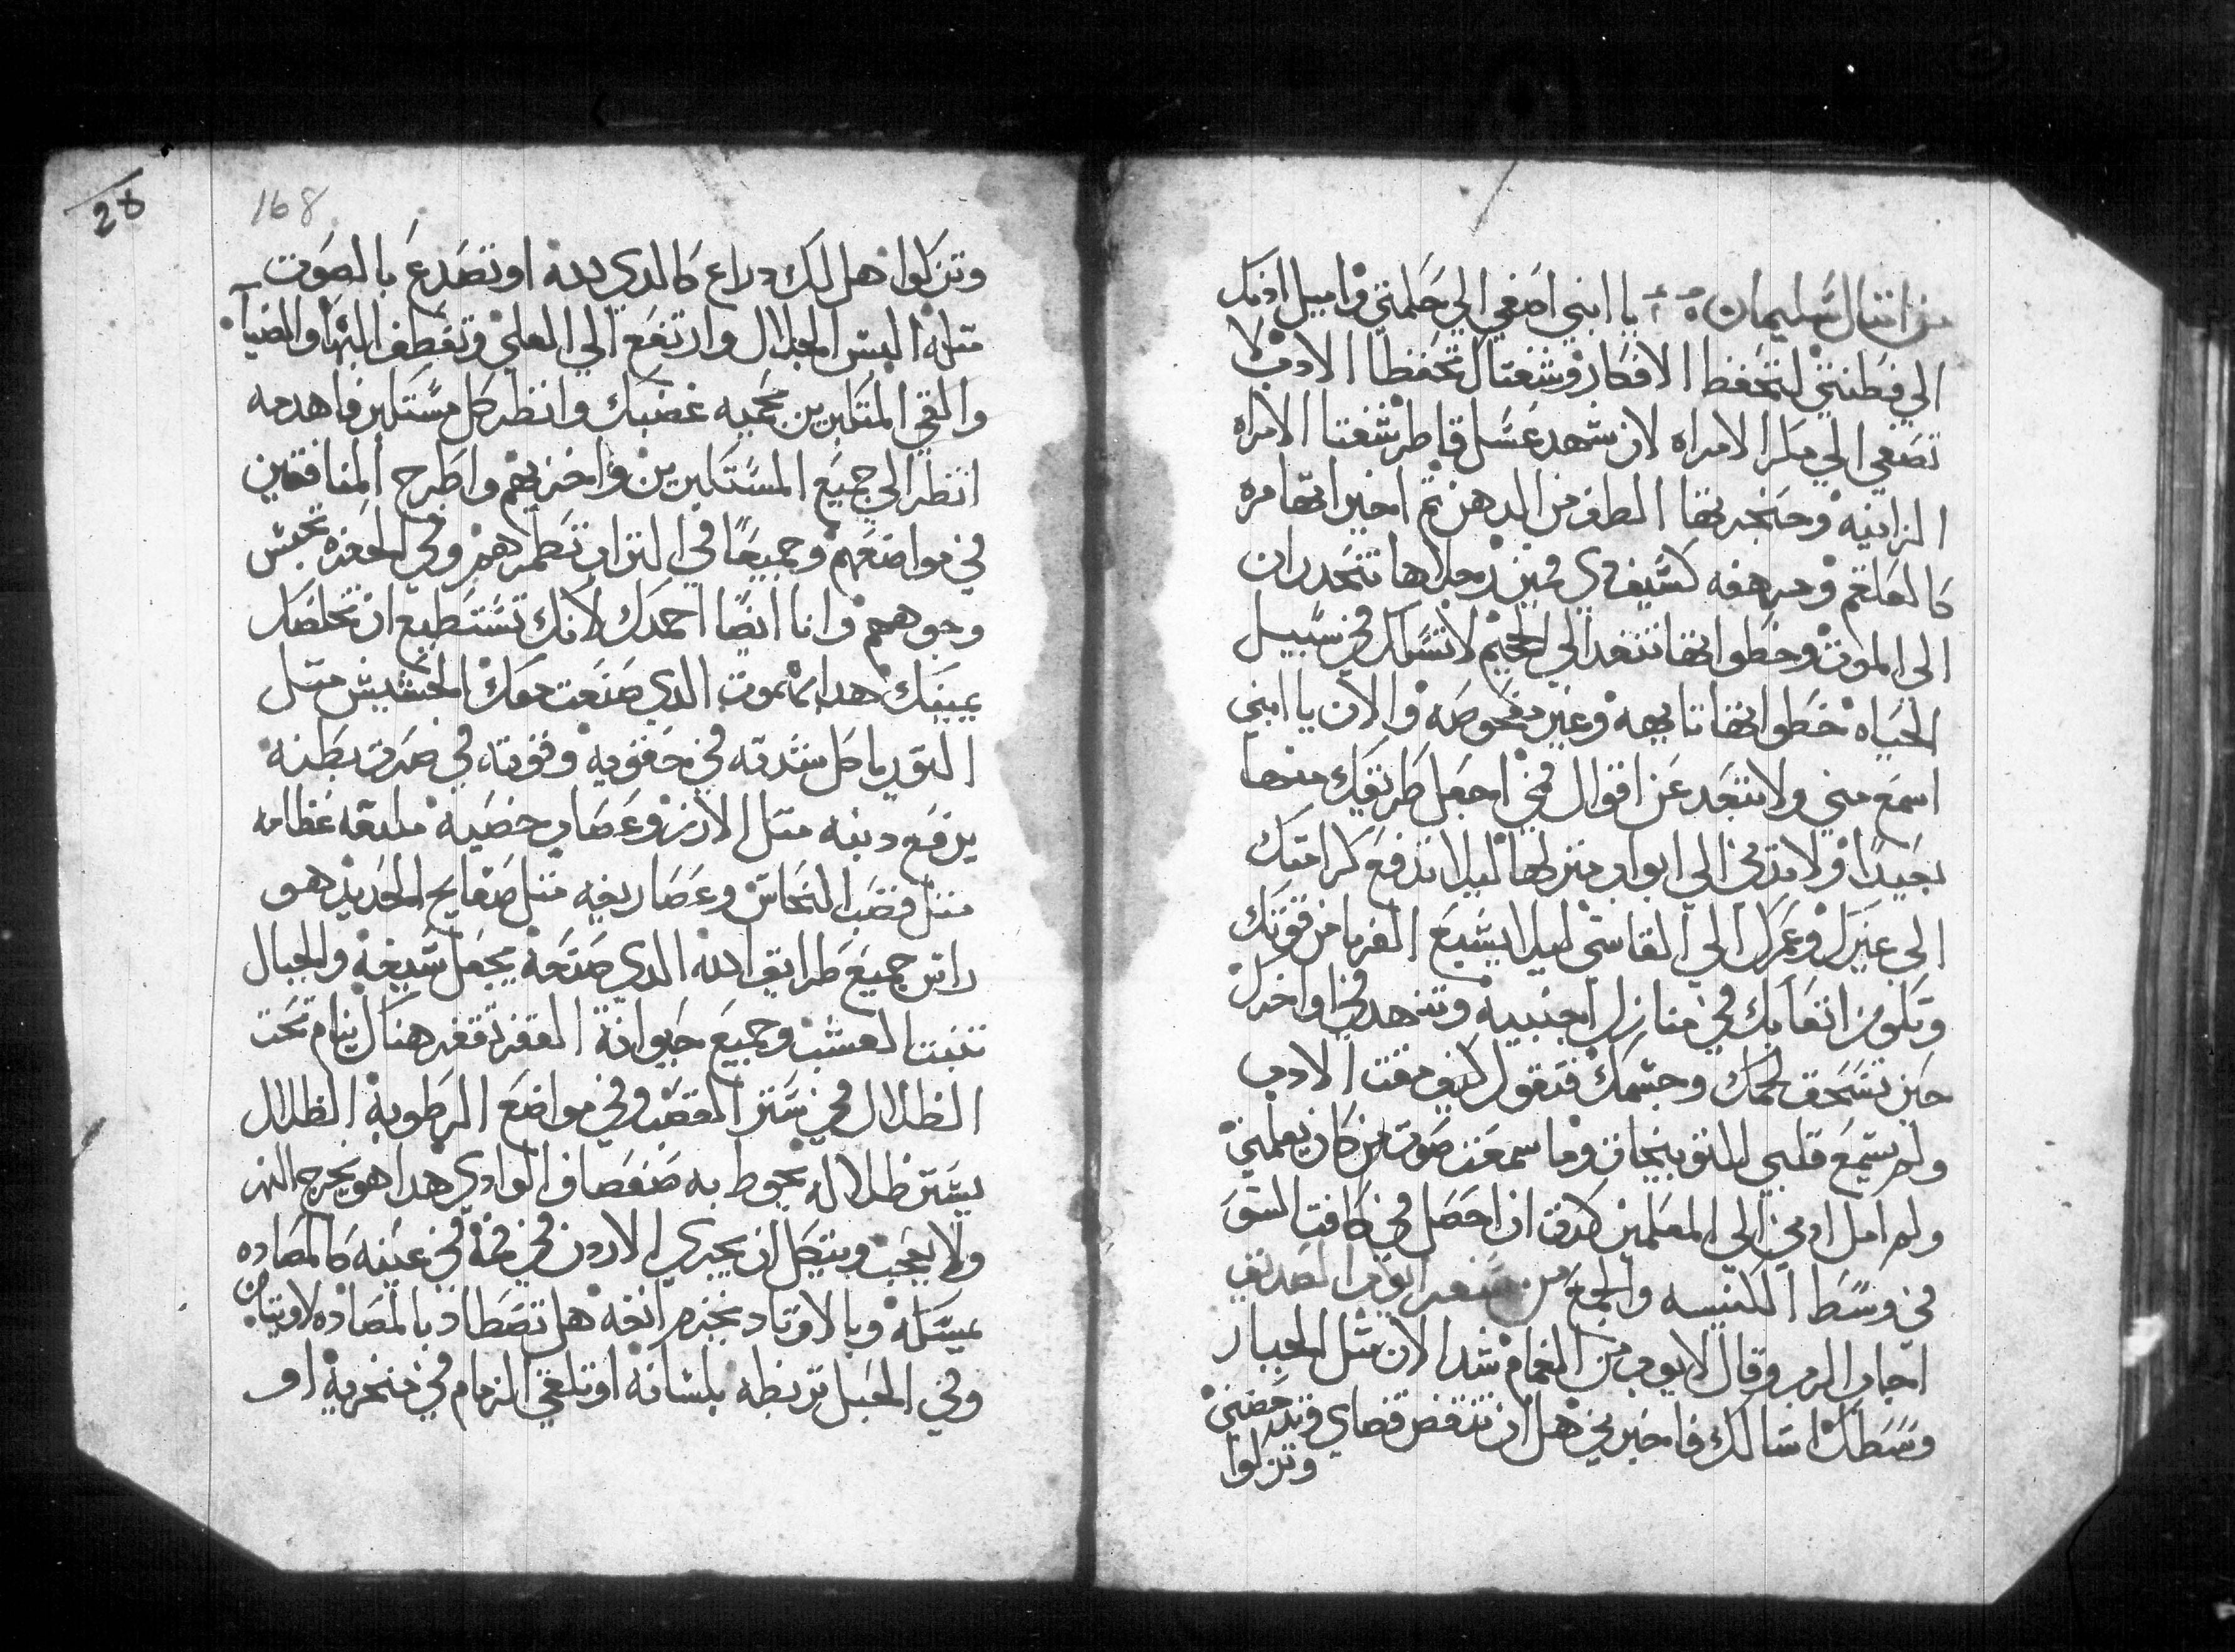 من امثال سليمان يا ابني اصغي الي حكمتي واميل ادنك
الي فطنتي لتحفظ الافكار وشفتاك تحفظا الادب لا
تصغي الي مكر الامراه لان شهد عسل قاطر شفتا الامراه
الزانيه وحنجرتها الطف من الدهن تم اخيراتها مره
كالعلقم ومرهفه كسيف دي فمين رجلاها تنحدران
الي الموت وخطواتها تنفد الي الجحيم لا تسلك في سبيل
الحياه خطواتها تايهه وغير مفحوصه والان يا ابني
اسمع مني ولا تبتعد عن اقوال فمي اجعل طريقك منها
بعيدا ولا تدني الي ابواب منزلها ليلا تدفع كرامتك
الي غيرك وعمرك الي القاسي ليلا يشبع الغربا من قوتك
وتكون اتعابك في منازل اجنبيه وتتنهد في اواخرك
حين تسحق لحمك وجسمك فتقول كيف مقت الادب
ولم يسمع قلبي للتوبيخات وما سمعت صوت من كان يعلمني
ولم امل ادني الي المعلمين كدت ان احصل في كافت السو
في وسط الكنيسه والجمع من سفر ايوب الصديق
اجاب الرب وقال لايوب من الغمام شد الان مثل الجبار
وسطك اسالك فاخبرني هل ان تنقض قضاي وتدحضني
وتزكوا
168
28
وتزكوا هل لك دراع كالدي لله او تصدع بالصوت
مثله البس الجلال وارتفع الي العلي وتعطف البها والضيا
والقي المتكبرين بحميه غضبك وانظر كل مستكبر فاهدمه
انظر الي جميع المستكبرين واخزيهم واطرح المنافقين
في مواضعهم وجميعا في التراب تطمرهم وفي الحفره تحبس
وجوههم وانا ايضا احمدك لانك تستطيع ان تخلصك
يمينك هدا بهموت الدي صنعت معك الحشيش مثل
التور ياكل شدته في حقويه وقوته في صرت بطنه
يرفع دنبه مثل الارز وعصاب خصيه ملتفه عظامه
مثل قضب النحاس وعصاريفه مثل صفايح الحديد هو
راس جميع طرايق الله الدي صنعه يجعل سيفه والجبال
تنبت العشب وجميع حيوانة القفر تقفز هناك ينام تحت
الظلال في ستر القصب وفي مواضع الرطوبه الظلال
يستر ظلاله يحوط به صفصاف الوادي هدا هو يخرج النهر
ولا يعجب ويتكل ان يجري الاردن في فمه في عينه كالمصاده
يمسكه وبالاوتاد يخزم انفه هل تصطاد بالمصاده لاوياتان
وفي الحبل تربطه بلسانه او تلقي الزمام في منخريه او